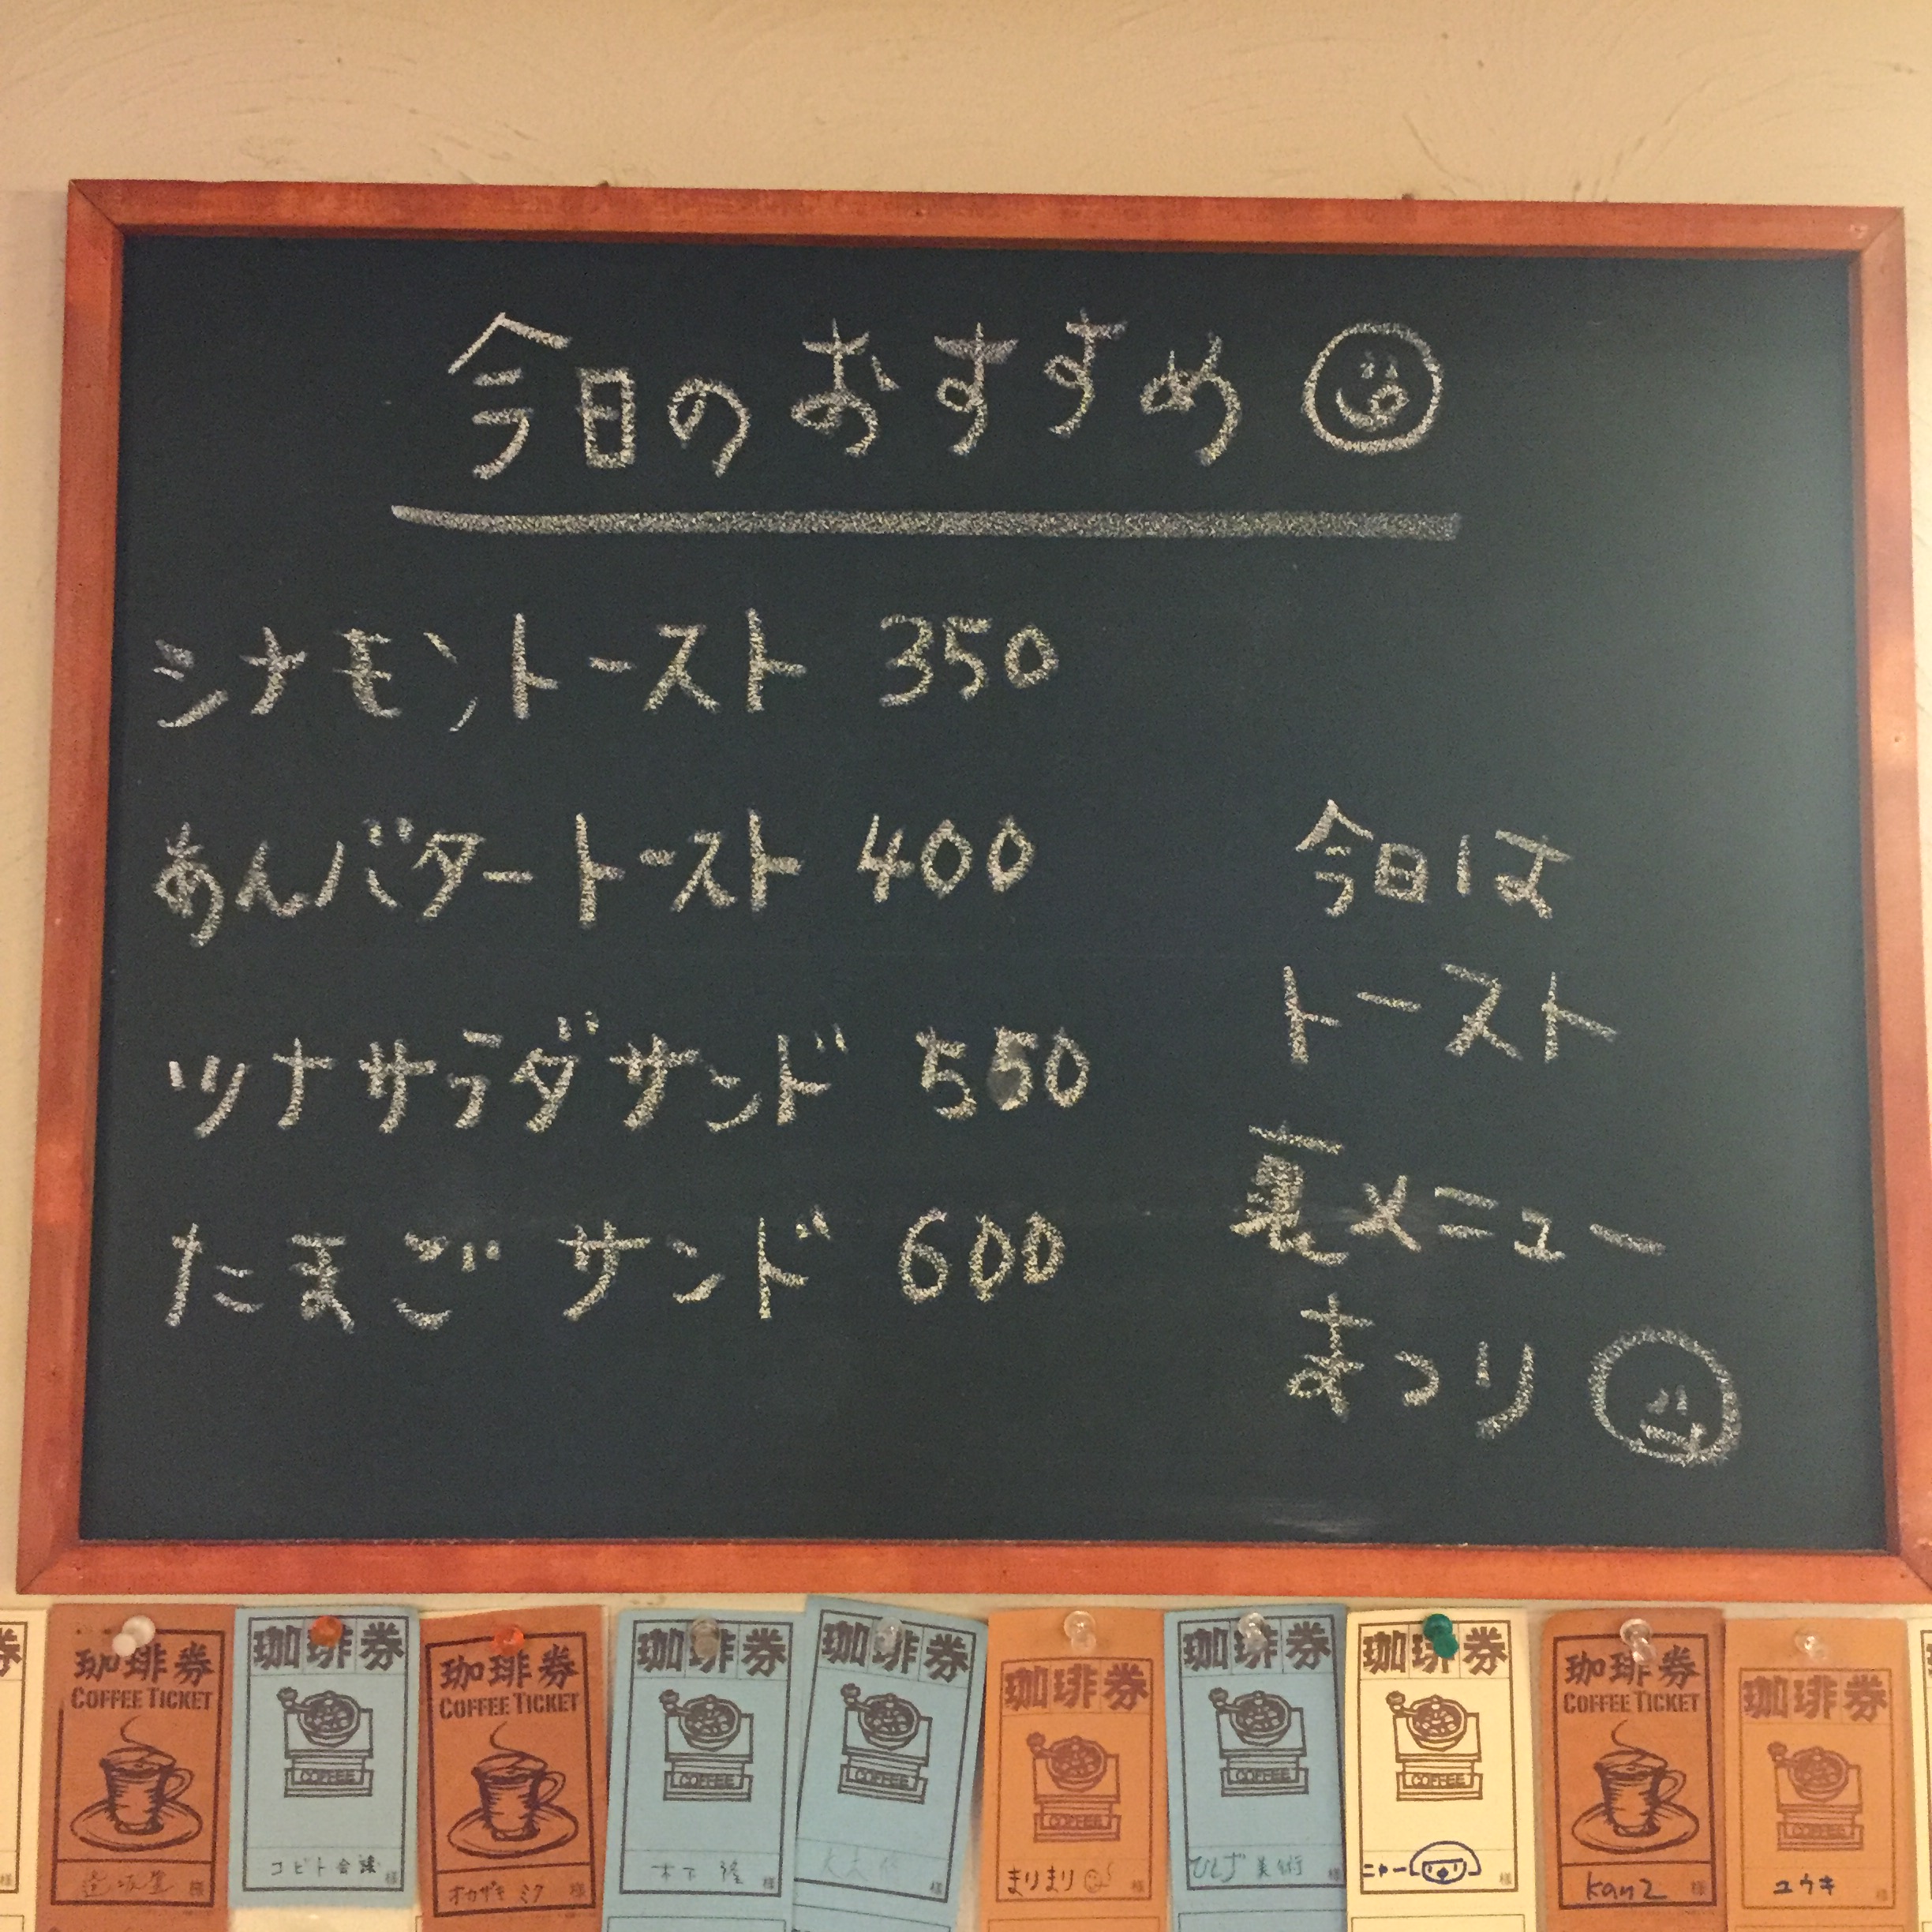 今日のおすすめ
シナモントースト 350
あんバタートースト 400
ツナサラダサンド 550
たまごサンド 600
今日は
トースト
裏メニュー
まつり
珈琲券
COFFEE TICKET
様
珈琲券
COFFEE
コビト会議 様
珈琲券
COFFEE TICKET
オカザキ ミク 様
珈琲券
COFFEE
木下 隆 様
珈琲券
COFFEE
様
珈琲券
COFFEE
まりまり 様
珈琲券
COFFEE
ひしず美術 様
珈琲券
COFFEE
ニャー 様
珈琲券
COFFEE TICKET
kanz 様
珈琲券
COFFEE
ユウキ 様